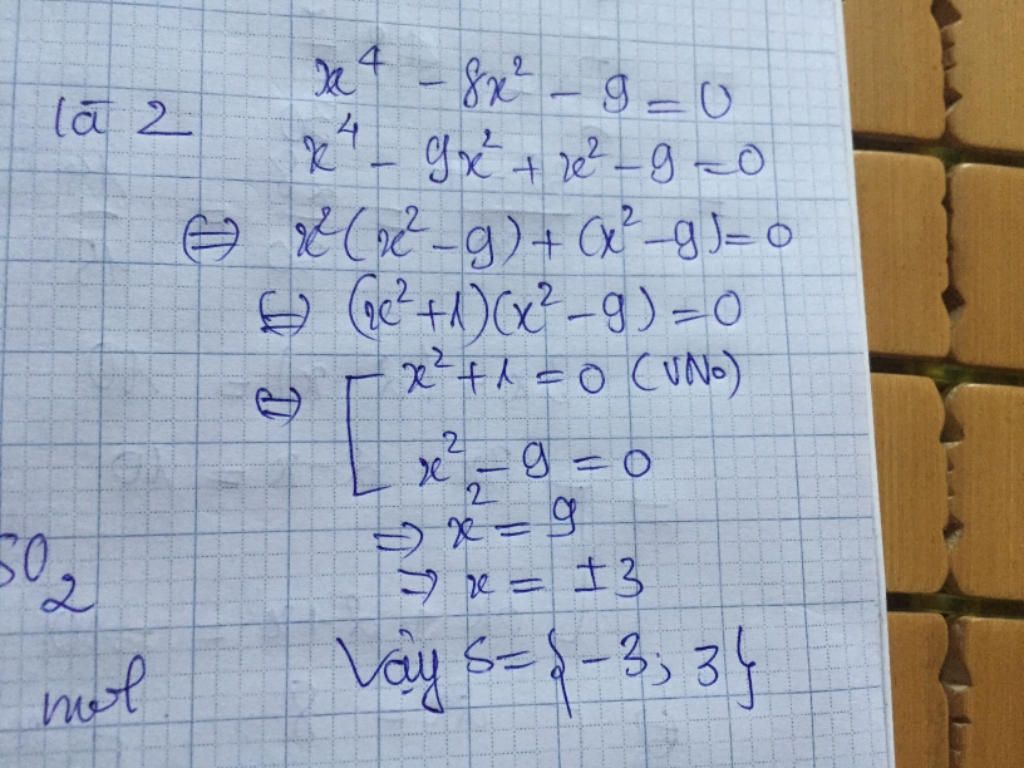 x⁴ - 8x² - 9 = 0
là 2
x⁴ - 9x² + x² - 9 = 0
⇔ x²(x² - 9) + (x² - 9) = 0
⇔ (x² + 1)(x² - 9) = 0
⇔ [ x² + 1 = 0 (VNo)
x² - 9 = 0
⇒ x² = 9
⇒ x = ±3
SO₂
Vậy S = {-3; 3}
mol